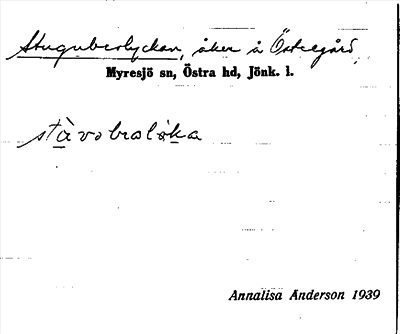 Stuguberlyckan, åker å Östregård,
Myresjö sn, Östra hd, Jönk. l.
Annalisa Anderson 1939